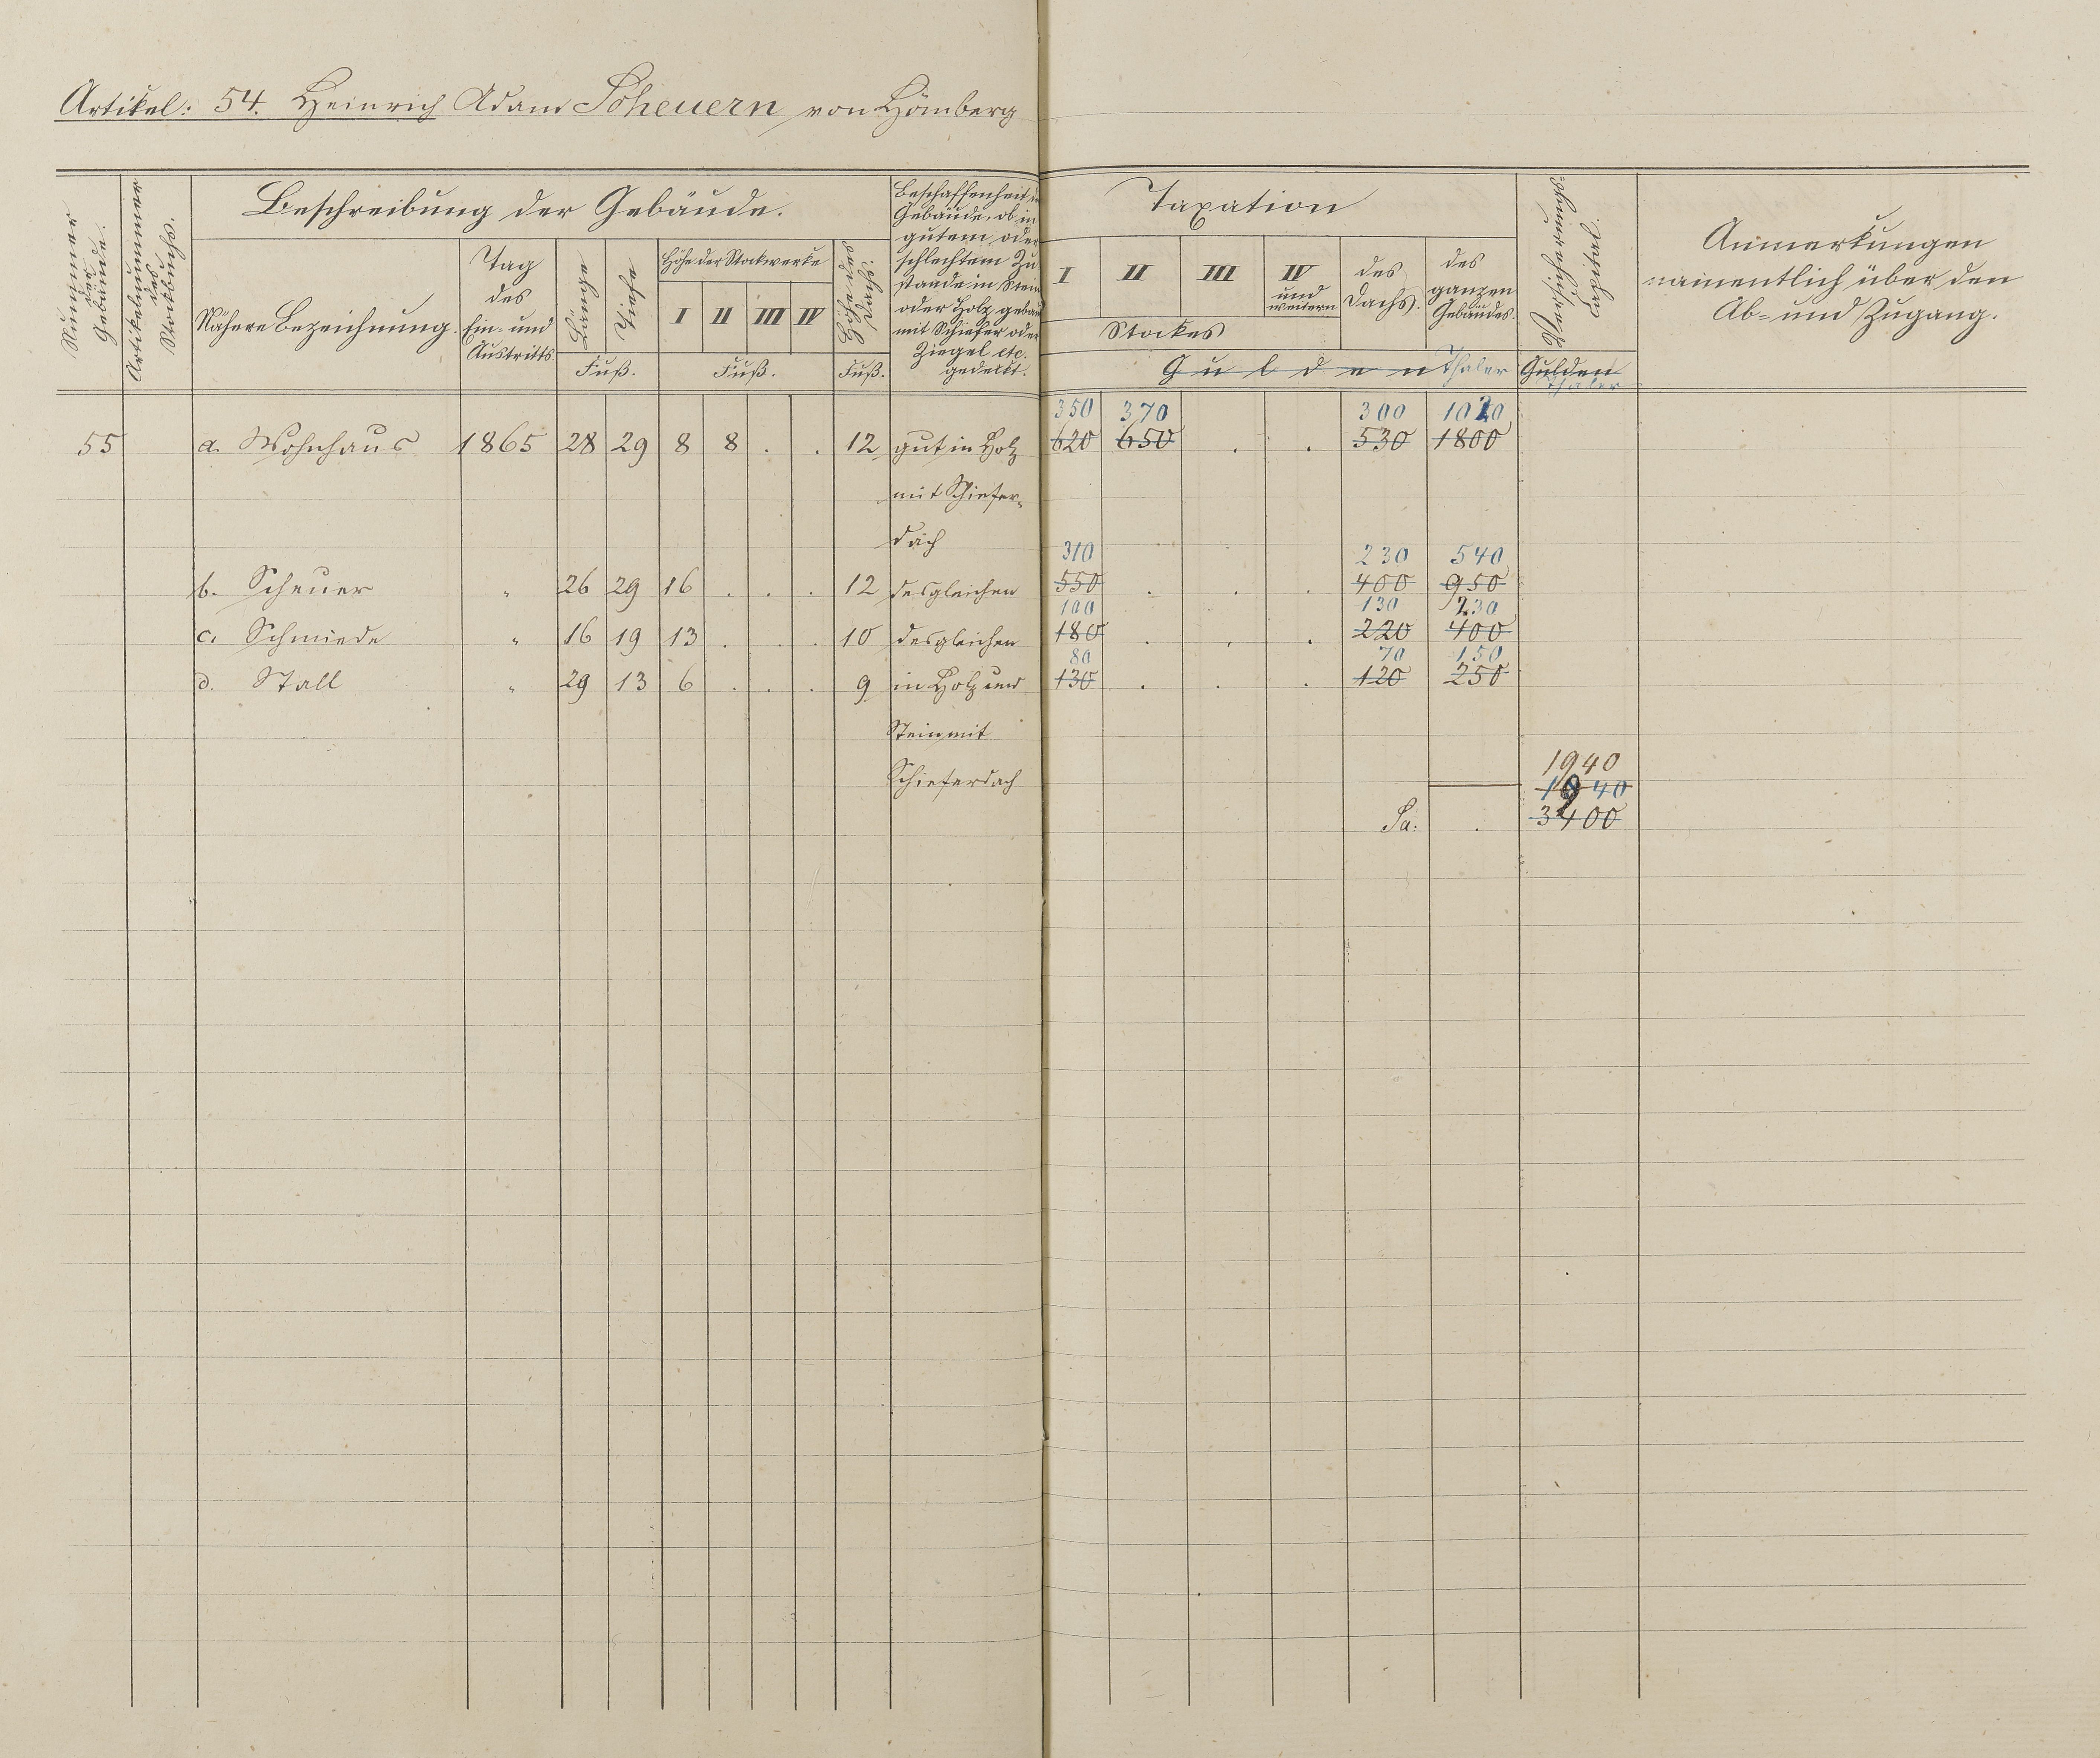 Artikel: 54. Heinrich Adam Scheuern von Hömberg
Nummer der Gebäude.
Artikelnummer des Stockbuchs.
Beschreibung der Gebäude.
Nähere Bezeichnung.
Tag des Ein- und Austritts
Länge
Tiefe
Fuß.
Höhe der Stockwerke
I II III IV
Fuß.
Höhe des Dachs.
Fuß.
Beschaffenheit der
Gebäude, ob in
gutem oder
schlechtem Zu-
stande in Stein
oder Holz gebaut
mit Schiefer oder
Ziegel etc.
gedeckt.
Taxation
I II III IV und weitern
Stockes
des Dachs.
des ganzen Gebäudes.
Gulden Thaler
Versicherungs Capital.
Gulden
Thaler
Anmerkungen
namentlich über den
Ab- und Zugang.
350 370 300 1020
55 a. Wohnhaus 1865 28 29 8 8 . . 12 gut in Holz 620 650 . . 530 1800
mit Schiefer-
dach
310 230 540
b. Scheuer " 26 29 16 . . . 12 desgleichen 550 . . . 400 950
100 130 230
c. Schmiede " 16 19 13 . . . 10 desgleichen 180 . . . 220 400
80 70 150
d. Stall " 29 13 6 . . . 9 in Holz und 130 . . . 120 250
Stein mit
Schieferdach
1940
1940
Sa: . 3400